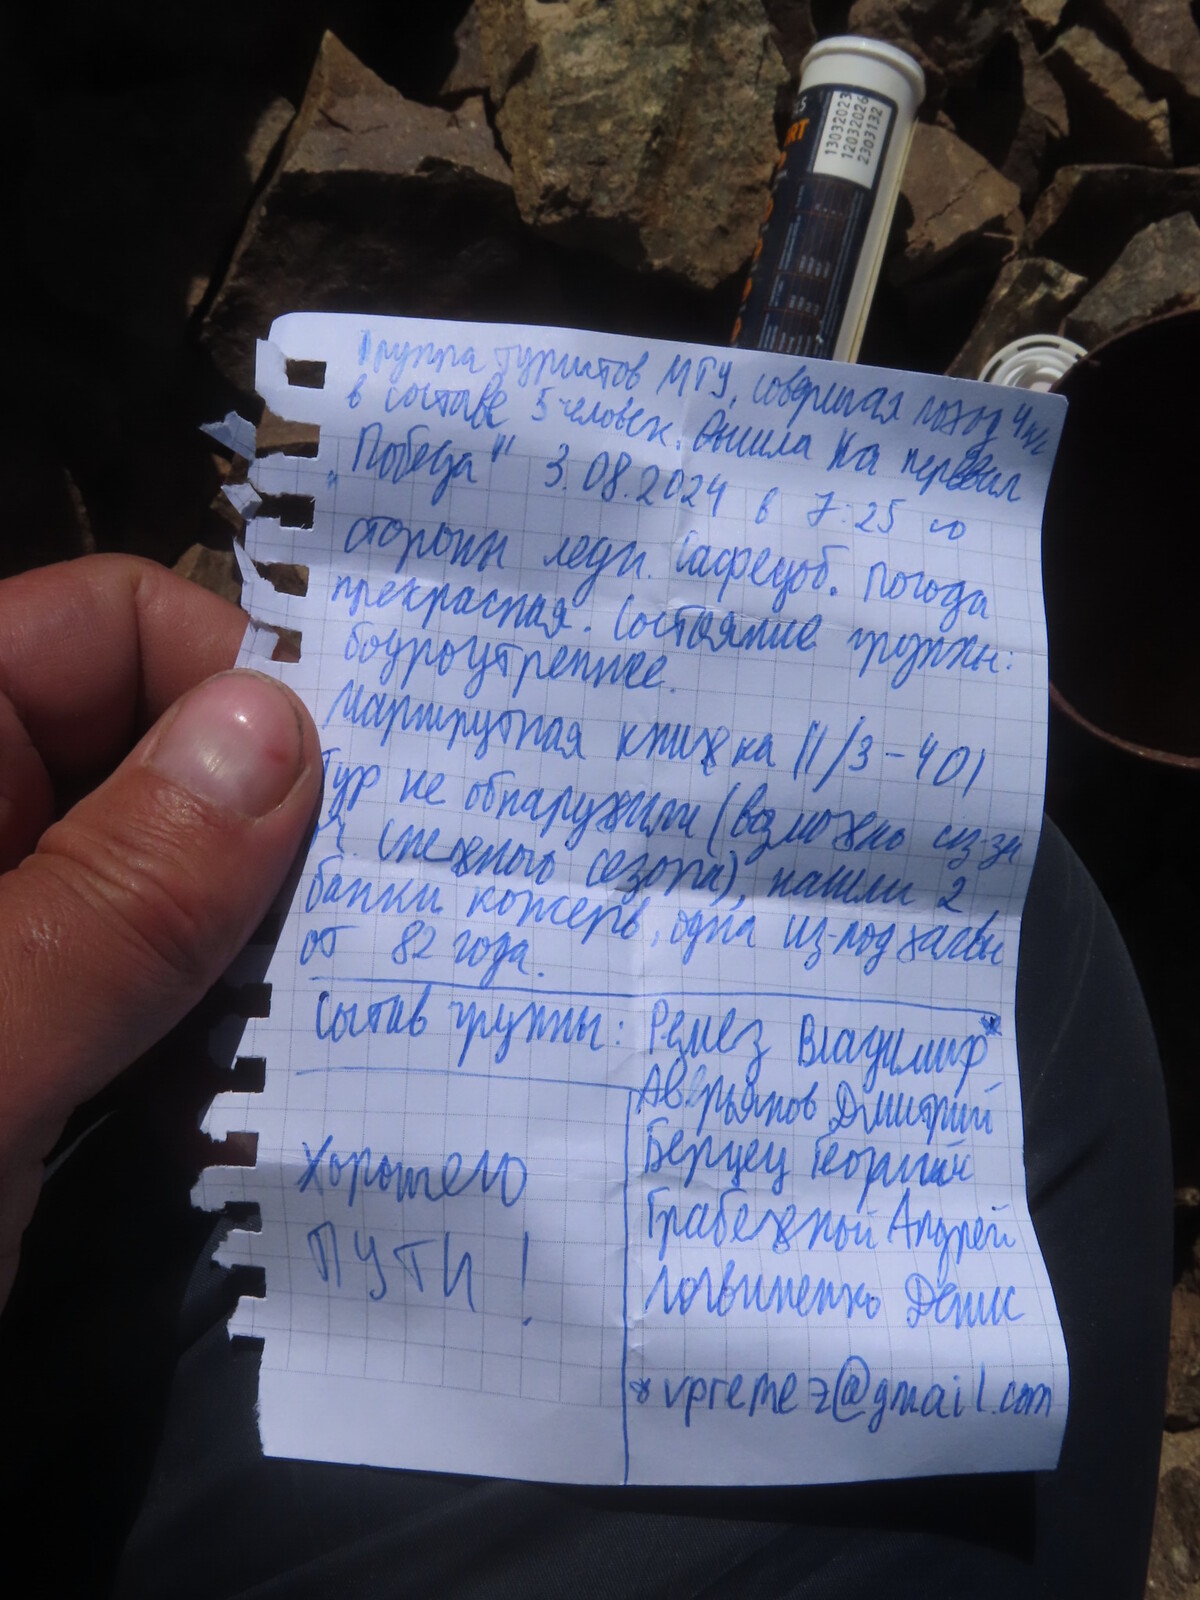 RT
13032023
12032026
2303132
Группа туристов МГУ, совершая поход 4 к/с
в составе 5 человек. Вышла на перевал
"Победа" 3.08.2024 в 7:25 со
стороны ледн. Сафедоб. Погода
прекрасная. Состояние группы:
бодроутреннее.
Маршрутная книжка 11/3-401
Тур не обнаружили (возможно из-за
снежного сезона), нашли 2
банки консерв, одна из-под халвы
от 82 года.
Состав группы: Ремез Владимир*
Аверьянов Дмитрий
Берцец Георгий
Грабежной Андрей
Логвиненко Денис
Хорошего
ПУТИ!
*vpremez@gmail.com